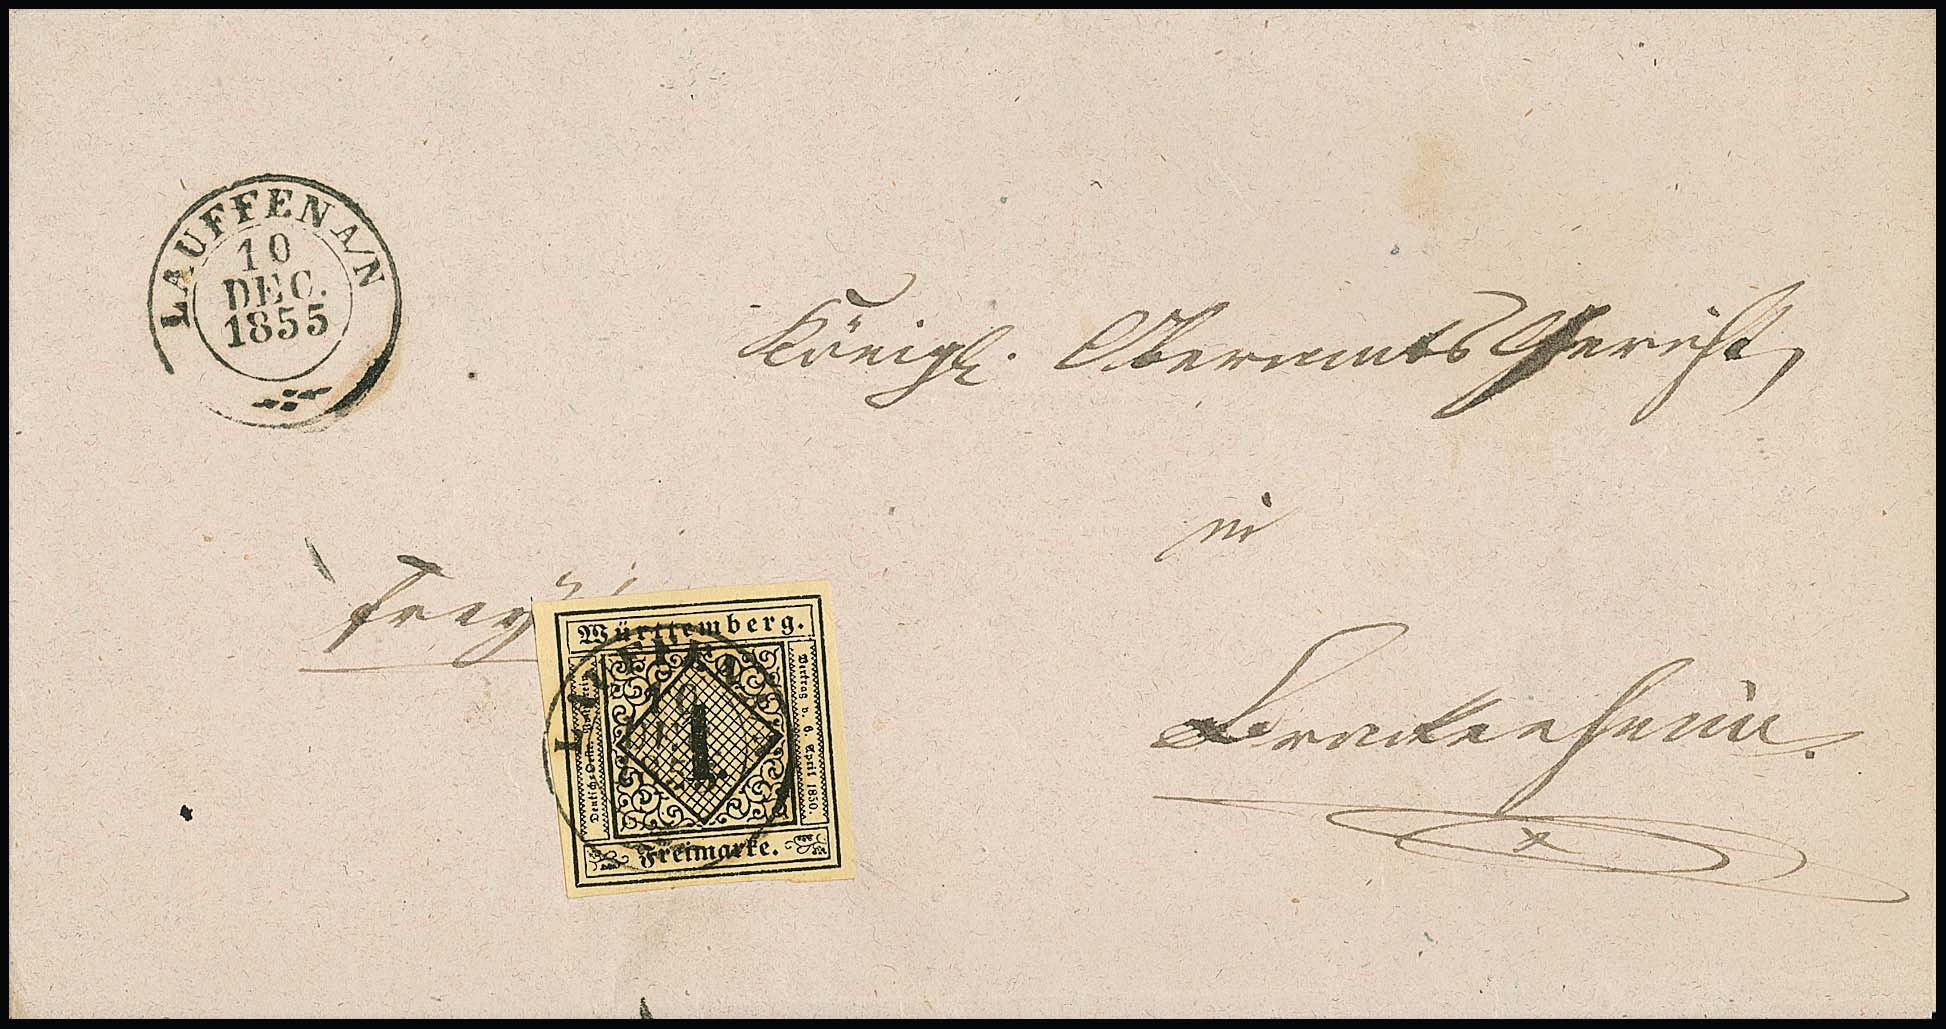 LAUFFEN A/N
10
DEC.
1855
Königl. Oberamts Gericht,
in
Brackenheim.
frey
Württemberg.
Deutsch-Östr. Postverein
Vertrag v. 6. April 1850
1.
Freimarke.
LAUFFEN
10